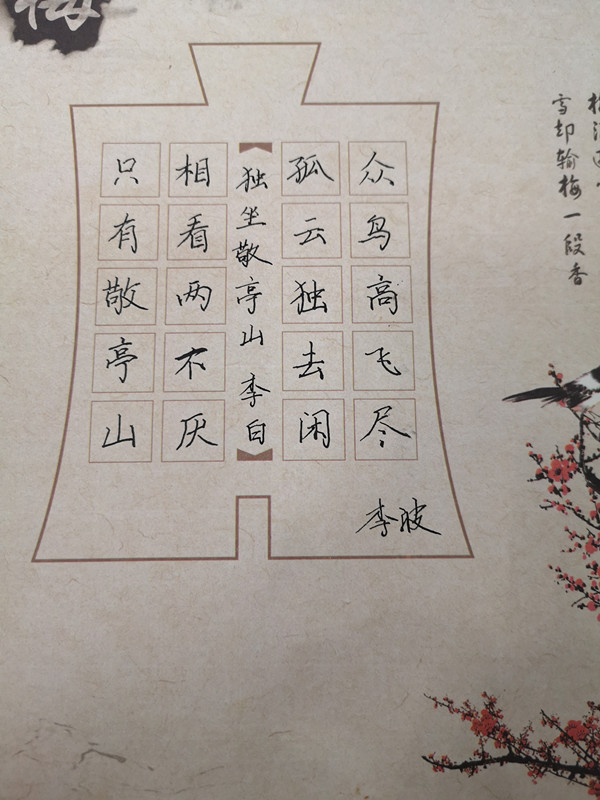 梅
雪却输梅一段香
众鸟高飞尽
孤云独去闲
独坐敬亭山 李白
相看两不厌
只有敬亭山
李波